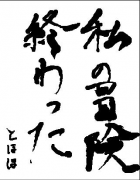 私の冒険
終わった
とほほ